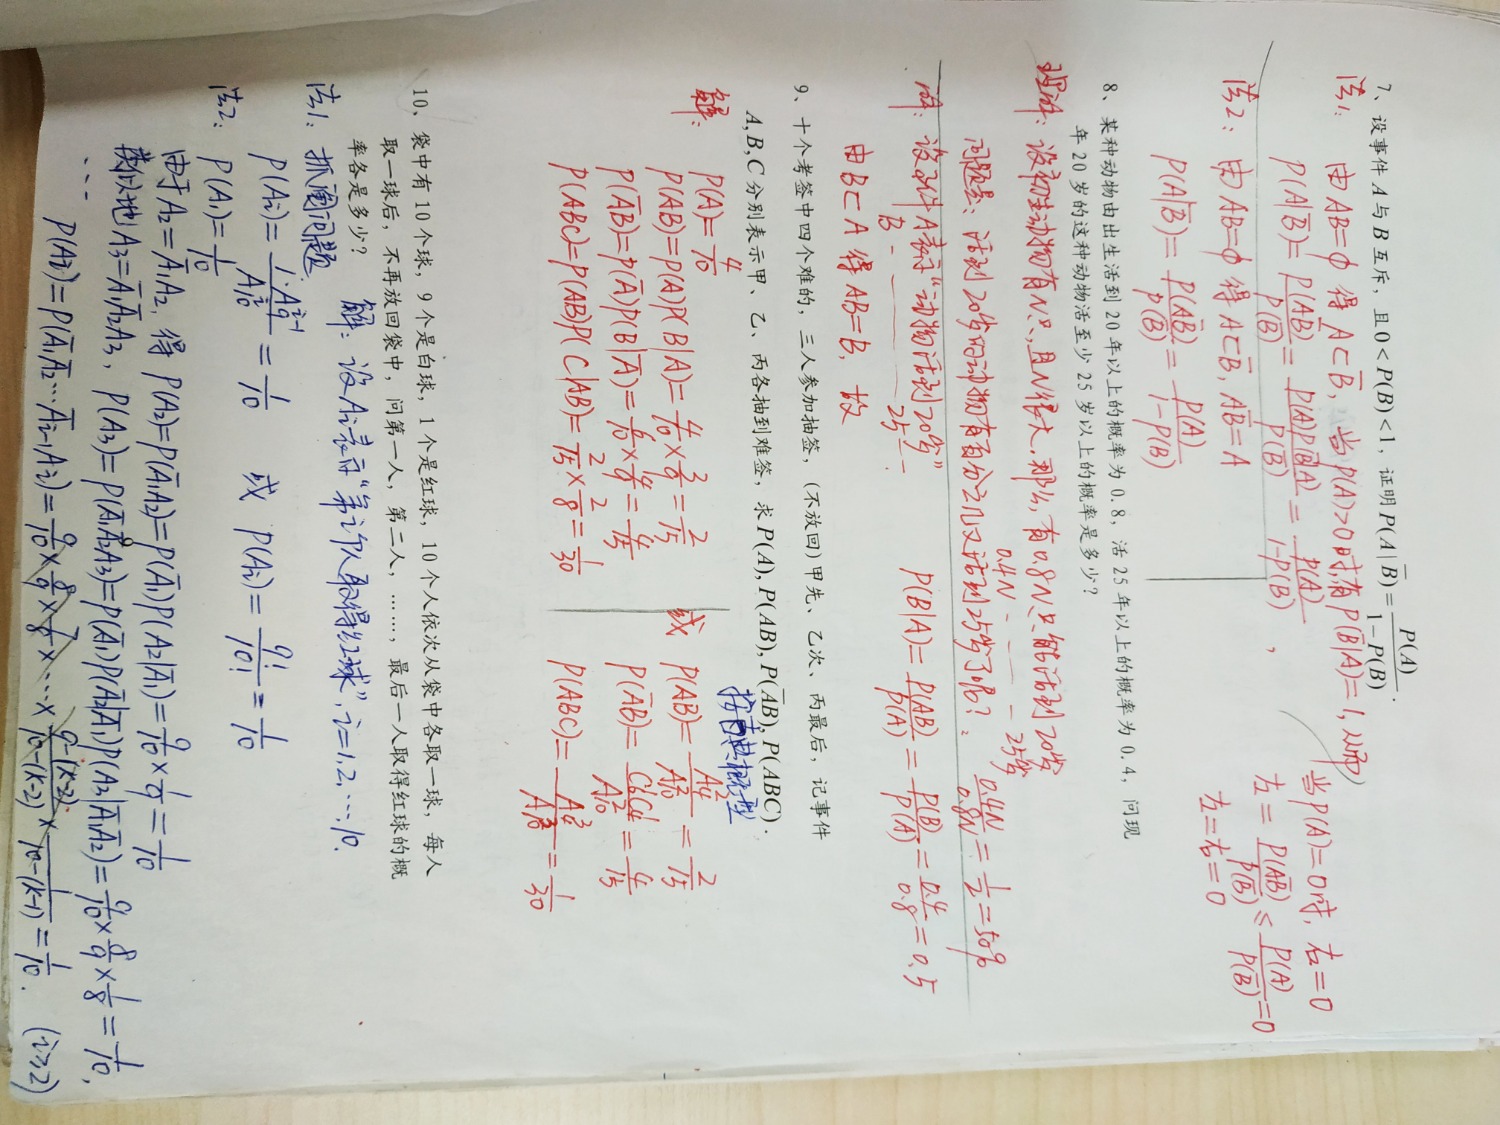 7、设事件 A 与 B 互斥，且 0 < P(B) < 1，证明 P(A|B̅) = P(A)/(1−P(B)).
法1: 由 AB=φ 得 A⊂B̅, 当 P(A)>0时,有 P(B̅|A)=1, 从而
P(A|B̅) = P(AB̅)/P(B̅) = P(A)P(B̅|A)/P(B̅) = P(A)/(1-P(B)) ,
当P(A)=0时, 右=0
左 = P(AB̅)/P(B̅) ≤ P(A)/P(B̅) =0
左=右=0
法2: 由 AB=φ 得 A⊂B̅, AB̅=A
P(A|B̅) = P(AB̅)/P(B̅) = P(A)/(1-P(B))
8、某种动物由出生活到 20 年以上的概率为 0.8，活 25 年以上的概率为 0.4，问现
年 20 岁的这种动物活至少 25 岁以上的概率是多少？
理解: 设初生动物有N只, 且N很大, 那么, 有0.8N只能活到20岁
0.4N — — 25岁
问题是: 活到20岁的动物有百分之几又活到25岁了呢? 0.4N/0.8N = 1/2 = 50%
解: 设事件A表示"动物活到20岁"
B — — 25 —
由 B⊂A 得 AB=B, 故
P(B|A) = P(AB)/P(A) = P(B)/P(A) = 0.4/0.8 = 0.5
9、十个考签中四个难的，三人参加抽签，(不放回) 甲先、乙次、丙最后，记事件
A,B,C 分别表示甲、乙、丙各抽到难签，求 P(A), P(AB), P(A̅B), P(ABC).
解: P(A)= 4/10
P(AB)=P(A)P(B|A)= 4/10 × 3/9 = 2/15
P(A̅B)=P(A̅)P(B|A̅)= 6/10 × 4/9 = 4/15
P(ABC)=P(AB)P(C|AB)= 2/15 × 2/8 = 1/30
按古典概型
或 P(AB)= A₄²/A₁₀² = 2/15
P(A̅B)= C₆¹C₄¹/A₁₀² = 4/15
P(ABC)= A₄³/A₁₀³ = 1/30
10、袋中有 10 个球，9 个是白球，1 个是红球，10 个人依次从袋中各取一球，每人
取一球后，不再放回袋中，问第一人，第二人，……，最后一人取得红球的概
率各是多少？
解: 设Aᵢ表示"第i个人取得红球", i=1,2,…10.
法1: 抓阄问题
P(Aᵢ)= 1·A₉ⁱ⁻¹/A₁₀ⁱ = 1/10 或 P(Aᵢ)= 9!/10! = 1/10
法2: P(A₁)= 1/10
由于 A₂=A̅₁A₂, 得 P(A₂)=P(A̅₁A₂)=P(A̅₁)P(A₂|A̅₁)= 9/10 × 1/9 = 1/10
类似地 A₃=A̅₁A̅₂A₃, P(A₃)=P(A̅₁A̅₂A₃)=P(A̅₁)P(A̅₂|A̅₁)P(A₃|A̅₁A̅₂)= 9/10 × 8/9 × 1/8 = 1/10,
… P(Aᵢ)=P(A̅₁A̅₂…A̅ᵢ₋₁Aᵢ)= 9/10 × 8/9 × 7/8 × … × 9-(k-2)/10-(k-2) × 1/10-(k-1) = 1/10. (i≥2)